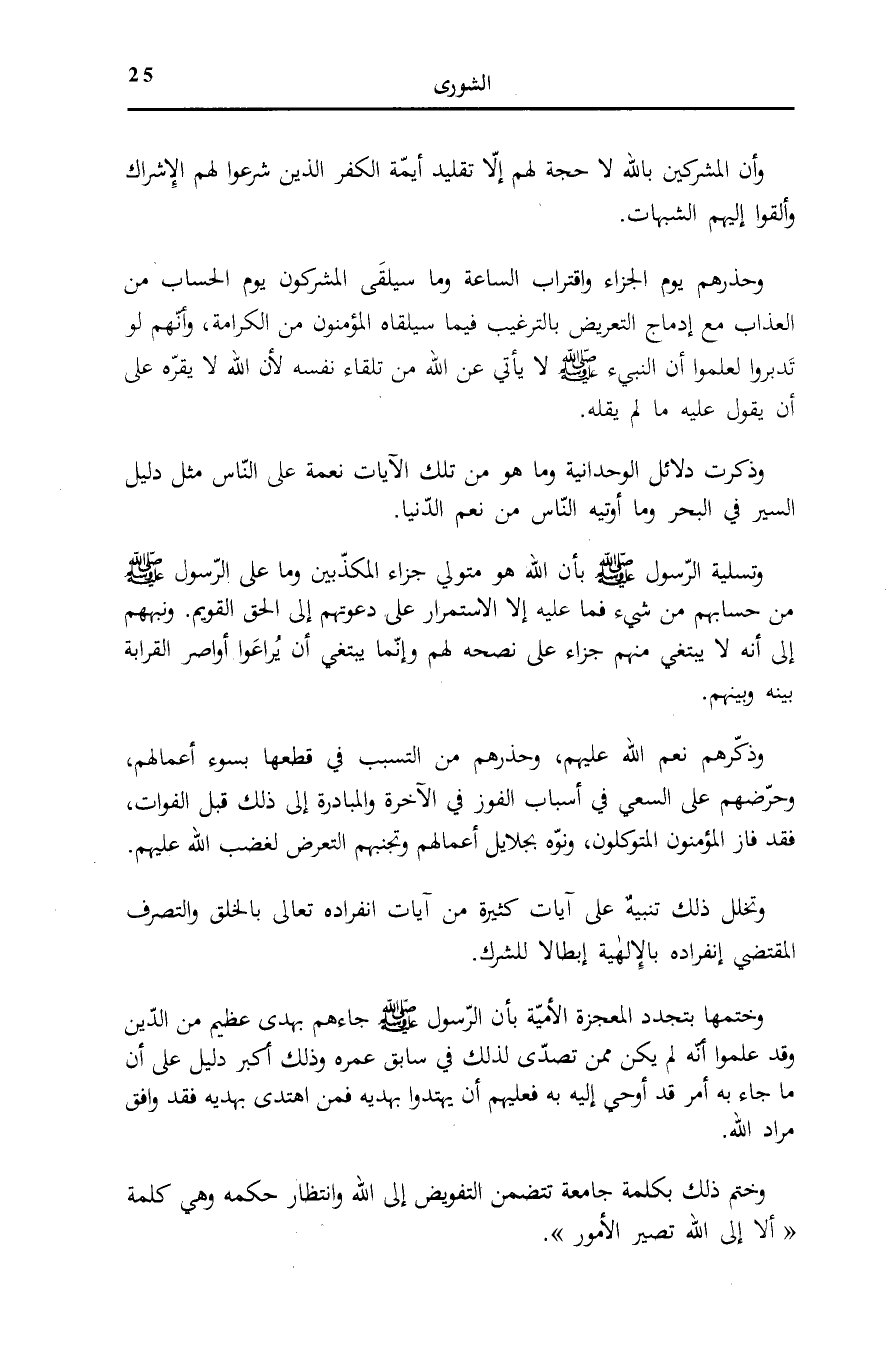 25
الشورى
وأن المشركين بالله لا حجة لهم إلّا تقليد أيمّة الكفر الذين شرعوا لهم الإشراك
وألقوا إليهم الشبهات.
وحذرهم يوم الجزاء واقتراب الساعة وما سيلقَى المشركون يوم الحساب من
العذاب مع إدماج التعريض بالترغيب فيما سيلقاه المؤمنون من الكرامة، وأنّهم لو
تَدبروا لعلموا أن النبيء ﷺ لا يأتي عن الله من تلقاء نفسه لأن الله لا يقرّه على
أن يقول عليه ما لم يقله.
وذكرت دلائل الوحدانية وما هو من تلك الآيات نعمة على النّاس مثل دليل
السير في البحر وما أوتيه النّاس من نعم الدّنيا.
وتسلية الرّسول ﷺ بأن الله هو متولي جزاء المكذّبين وما على الرّسول ﷺ
من حسابهم من شيء فما عليه إلا الاستمرار على دعوتهم إلى الحق القويم. ونبههم
إلى أنه لا يبتغي منهم جزاء على نصحه لهم وإنّما يبتغي أن يُراعَوا أواصر القرابة
بينه وبينهم.
وذكّرهم نعم الله عليهم، وحذرهم من التسبب في قطعها بسوء أعمالهم،
وحرّضهم على السعي في أسباب الفوز في الآخرة والمبادرة إلى ذلك قبل الفوات،
فقد فاز المؤمنون المتوكلون، ونوّه بجلايل أعمالهم وتجنبهم التعرض لغضب الله عليهم.
وتخلل ذلك تنبيهٌ على آيات كثيرة من آيات انفراده تعالى بالخلق والتصرف
المقتضي إنفراده بالإلٰهية إبطالا للشرك.
وختمها بتجدد المعجزة الأميّة بأن الرّسول ﷺ جاءهم بهدى عظيم من الدّين
وقد علموا أنّه لم يكن ممن تصدّى لذلك في سابق عمره وذلك أكبر دليل على أن
ما جاء به أمر قد أوحي إليه به فعليهم أن يهتدوا بهديه فمن اهتدى بهديه فقد وافق
مراد الله.
وختم ذلك بكلمة جامعة تتضمن التفويض إلى الله وانتظار حكمه وهي كلمة
« ألا إلى الله تصير الأمور ».